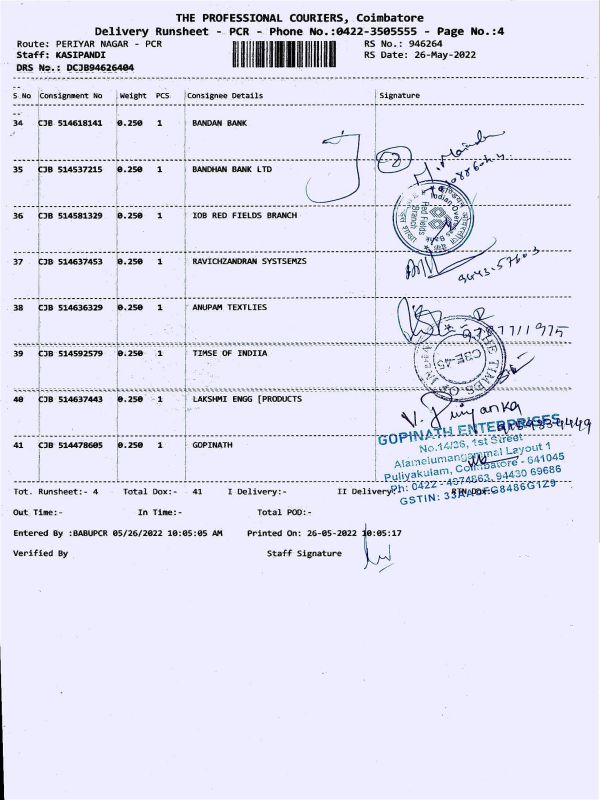 THE PROFESSIONAL COURIERS, Coimbatore
Delivery Runsheet - PCR - Phone No.:0422-3505555 - Page No.:4
Route: PERIYAR NAGAR - PCR
RS No.: 946264
Staff: KASIPANDI
RS Date: 26-May-2022
DRS No.: DCJB94626404
S No Consignment No Weight PCS Consignee Details Signature
34 CJB 514618141 0.250 1 BANDAN BANK
35 CJB 514537215 0.250 1 BANDHAN BANK LTD
36 CJB 514581329 0.250 1 IOB RED FIELDS BRANCH
Indian Overseas Bank
Red Fields
Branch
37 CJB 514637453 0.250 1 RAVICHZANDRAN SYSTSEMZS
38 CJB 514636329 0.250 1 ANUPAM TEXTLIES
39 CJB 514592579 0.250 1 TIMSE OF INDIIA
THE TIMES OF INDIA
CBE-45
40 CJB 514637443 0.250 1 LAKSHMI ENGG [PRODUCTS
V. Priyanka
41 CJB 514478605 0.250 1 GOPINATH
GOPINATH ENTERPRISES
No.14/36, 1st Street
Alamelumangammal Layout 1
Puliyakulam, Coimbatore - 641045
Ph: 0422 - 4974863, 94430 69686
Tot. Runsheet:- 4 Total Dox:- 41 I Delivery:- II Delivery:-
Out Time:- In Time:- Total POD:-
Entered By :BABUPCR 05/26/2022 10:05:05 AM Printed On: 26-05-2022 10:05:17
Verified By Staff Signature